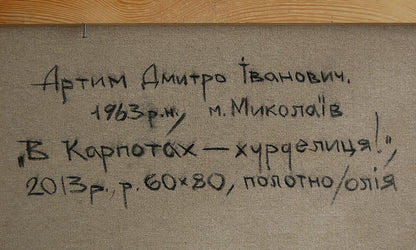 Артим Дмитро Іванович.
1963 р.н., м. Миколаїв
„В Карпотах — хурделиця!",
2013 р., р. 60×80, полотно/олія